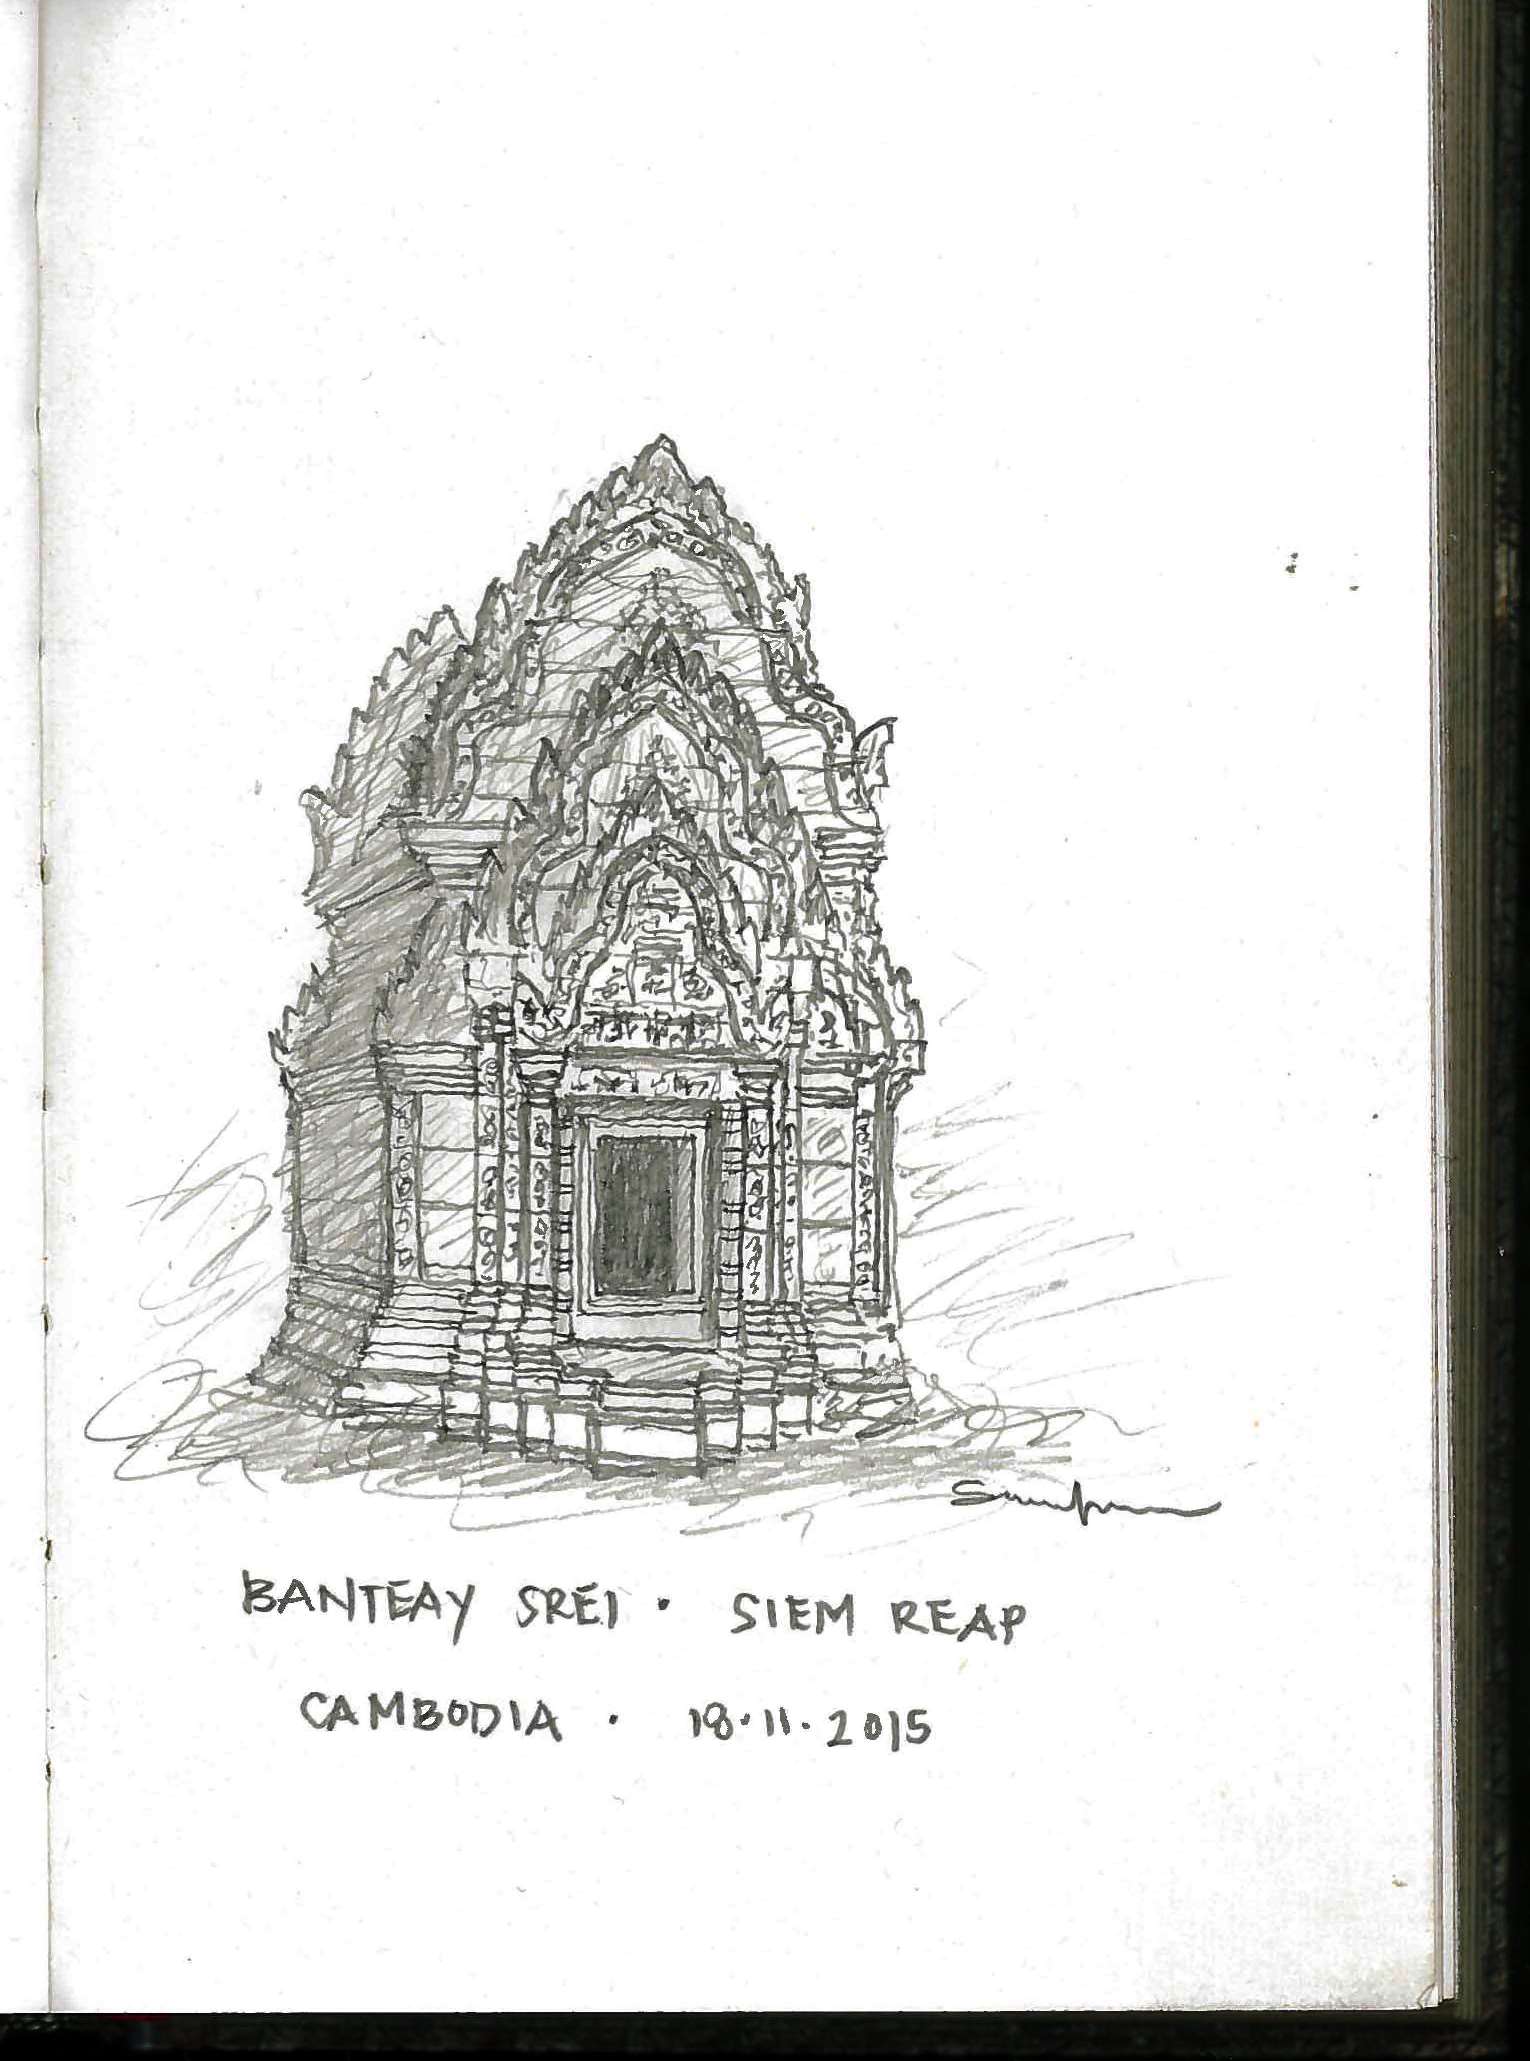 BANTEAY SREI · SIEM REAP
CAMBODIA · 18·11·2015